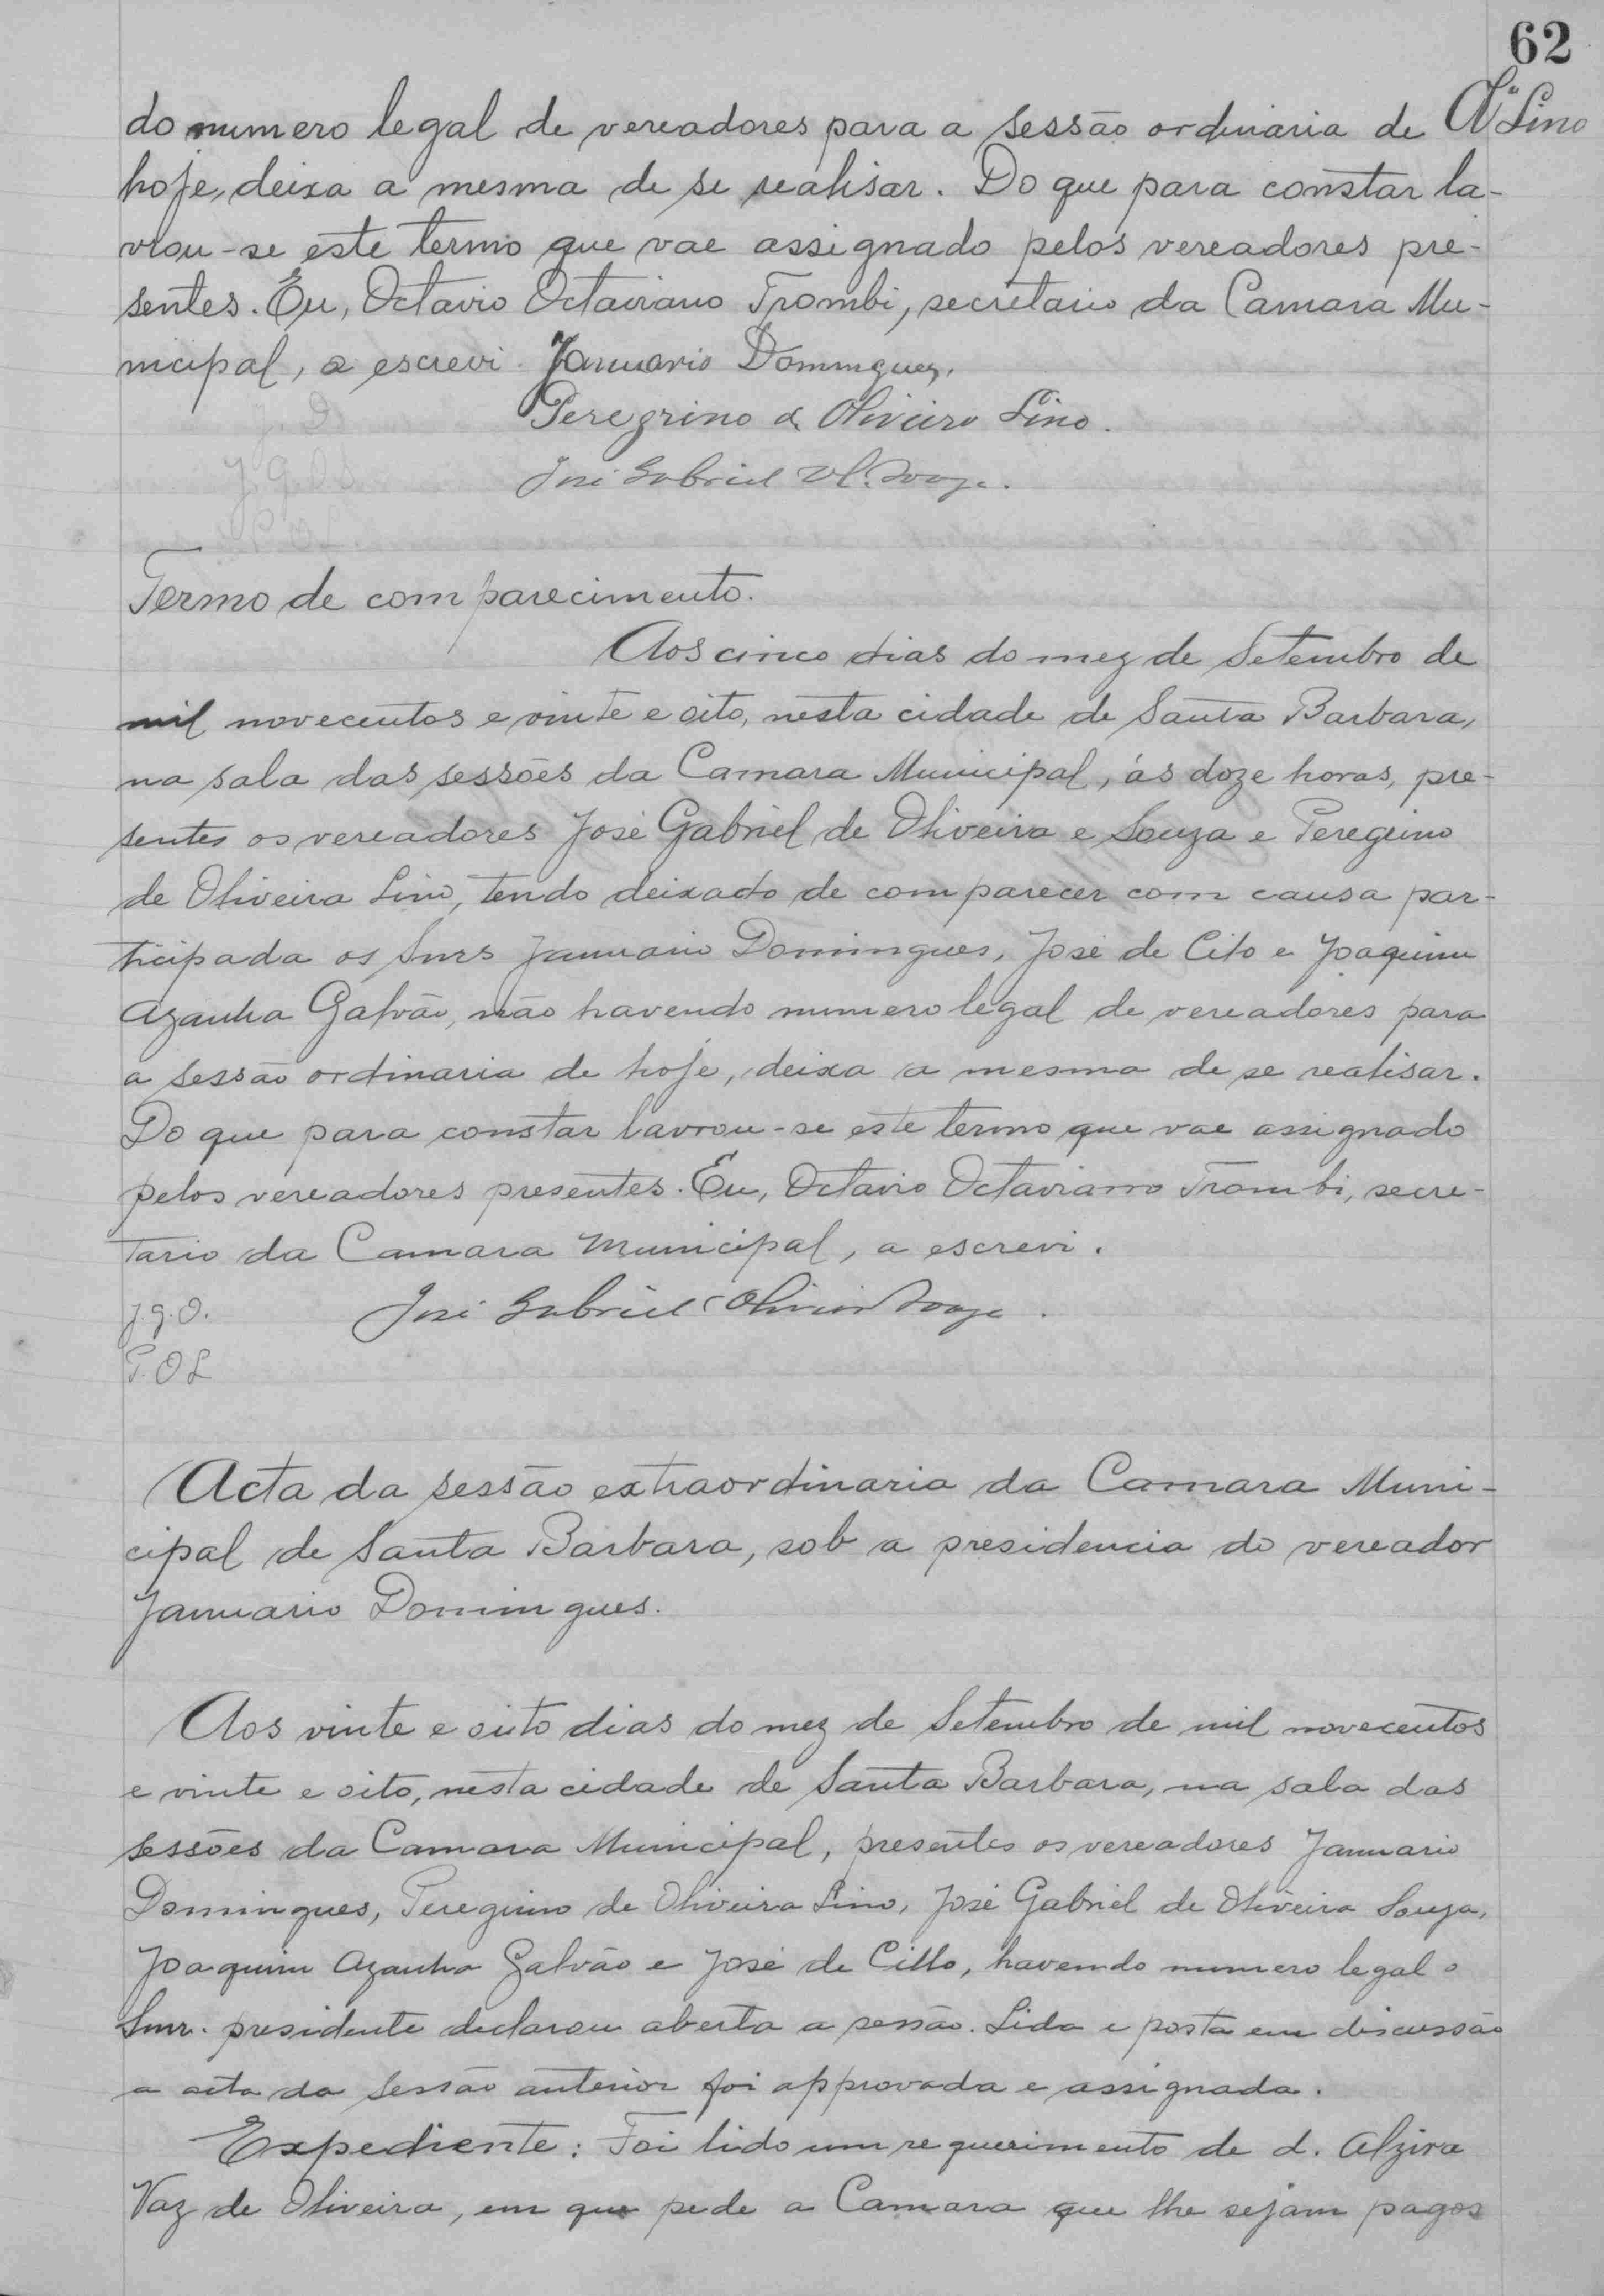 62
do numero legal de vereadores para a sessão ordinaria de
Lino
hoje, deixa a mesma de se realisar. Do que para constar la-
vrou-se este termo que vae assignado pelos vereadores pre-
sentes. Eu, Octavio Octaviano Trombi, secretario da Camara Mu-
nicipal, a escrevi. Januario Domingues,
Peregrino de Oliveira Lino.
José Gabriel Souza.
Termo de comparecimento.
Aos cinco dias do mez de Setembro de
mil novecentos e vinte e oito, nesta cidade de Santa Barbara,
na sala das sessões da Camara Municipal, ás doze horas, pre-
sentes os vereadores José Gabriel de Oliveira e Souza e Peregrino
de Oliveira Lino, tendo deixado de comparecer com causa par-
ticipada os Snrs Januario Domingues, José de Cilo e Joaquim
Azanha Galvão, não havendo numero legal de vereadores para
a sessão ordinaria de hoje, deixa a mesma de se realisar.
Do que para constar lavrou-se este termo que vae assignado
pelos vereadores presentes. Eu, Octavio Octaviano Trombi, secre-
tario da Camara Municipal, a escrevi.
J. G. O. José Gabriel Oliveira Souza.
P. O L
Acta da sessão extraordinaria da Camara Muni-
cipal de Santa Barbara, sob a presidencia do vereador
Januario Domingues.
Aos vinte e oito dias do mez de Setembro de mil novecentos
e vinte e oito, nesta cidade de Santa Barbara, na sala das
sessões da Camara Municipal, presentes os vereadores Januario
Domingues, Peregrino de Oliveira Lino, José Gabriel de Oliveira Souza,
Joaquim Azanha Galvão e José de Cillo, havendo numero legal o
Snr. presidente declarou aberta a sessão. Lida e posta em discussão
a acta da sessão anterior foi approvada e assignada.
Expediente: Foi lido um requerimento de d. Alzira
Vaz de Oliveira, em que pede a Camara que lhe sejam pagos